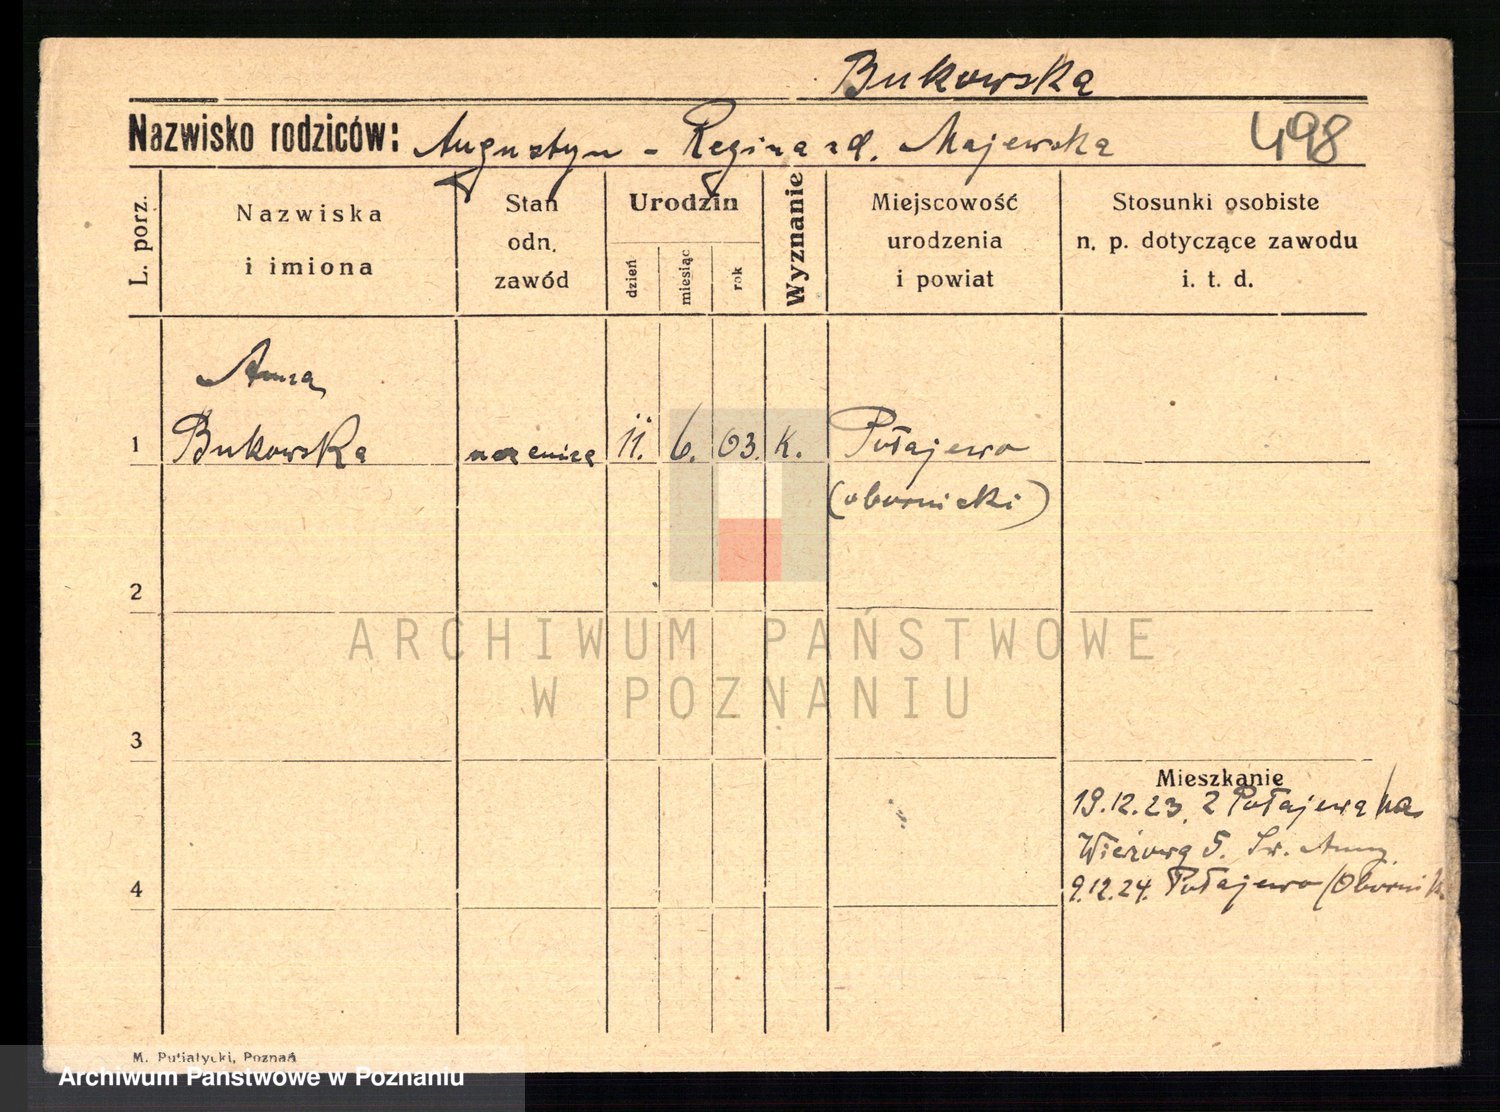 Bukowska
Nazwisko rodziców: Augustyn - Regina zd. Majewska 498
L. porz.
Nazwiska
i imiona
Stan
odn.
zawód
Urodzin
dzień
miesiąc
rok
Wyznanie
Miejscowość
urodzenia
i powiat
Stosunki osobiste
n. p. dotyczące zawodu
i. t. d.
Anna
1 Bukowska uczenica 11. 6. 03. k. Połajewo
(obornicki)
2
3
Mieszkanie
19.12.23. z Połajewa na
Wieżową 5. Św. Anny
4 9.12.24. Połajewo (Obornik
M. Putiatycki, Poznań
ARCHIWUM PAŃSTWOWE
W POZNANIU
Archiwum Państwowe w Poznaniu